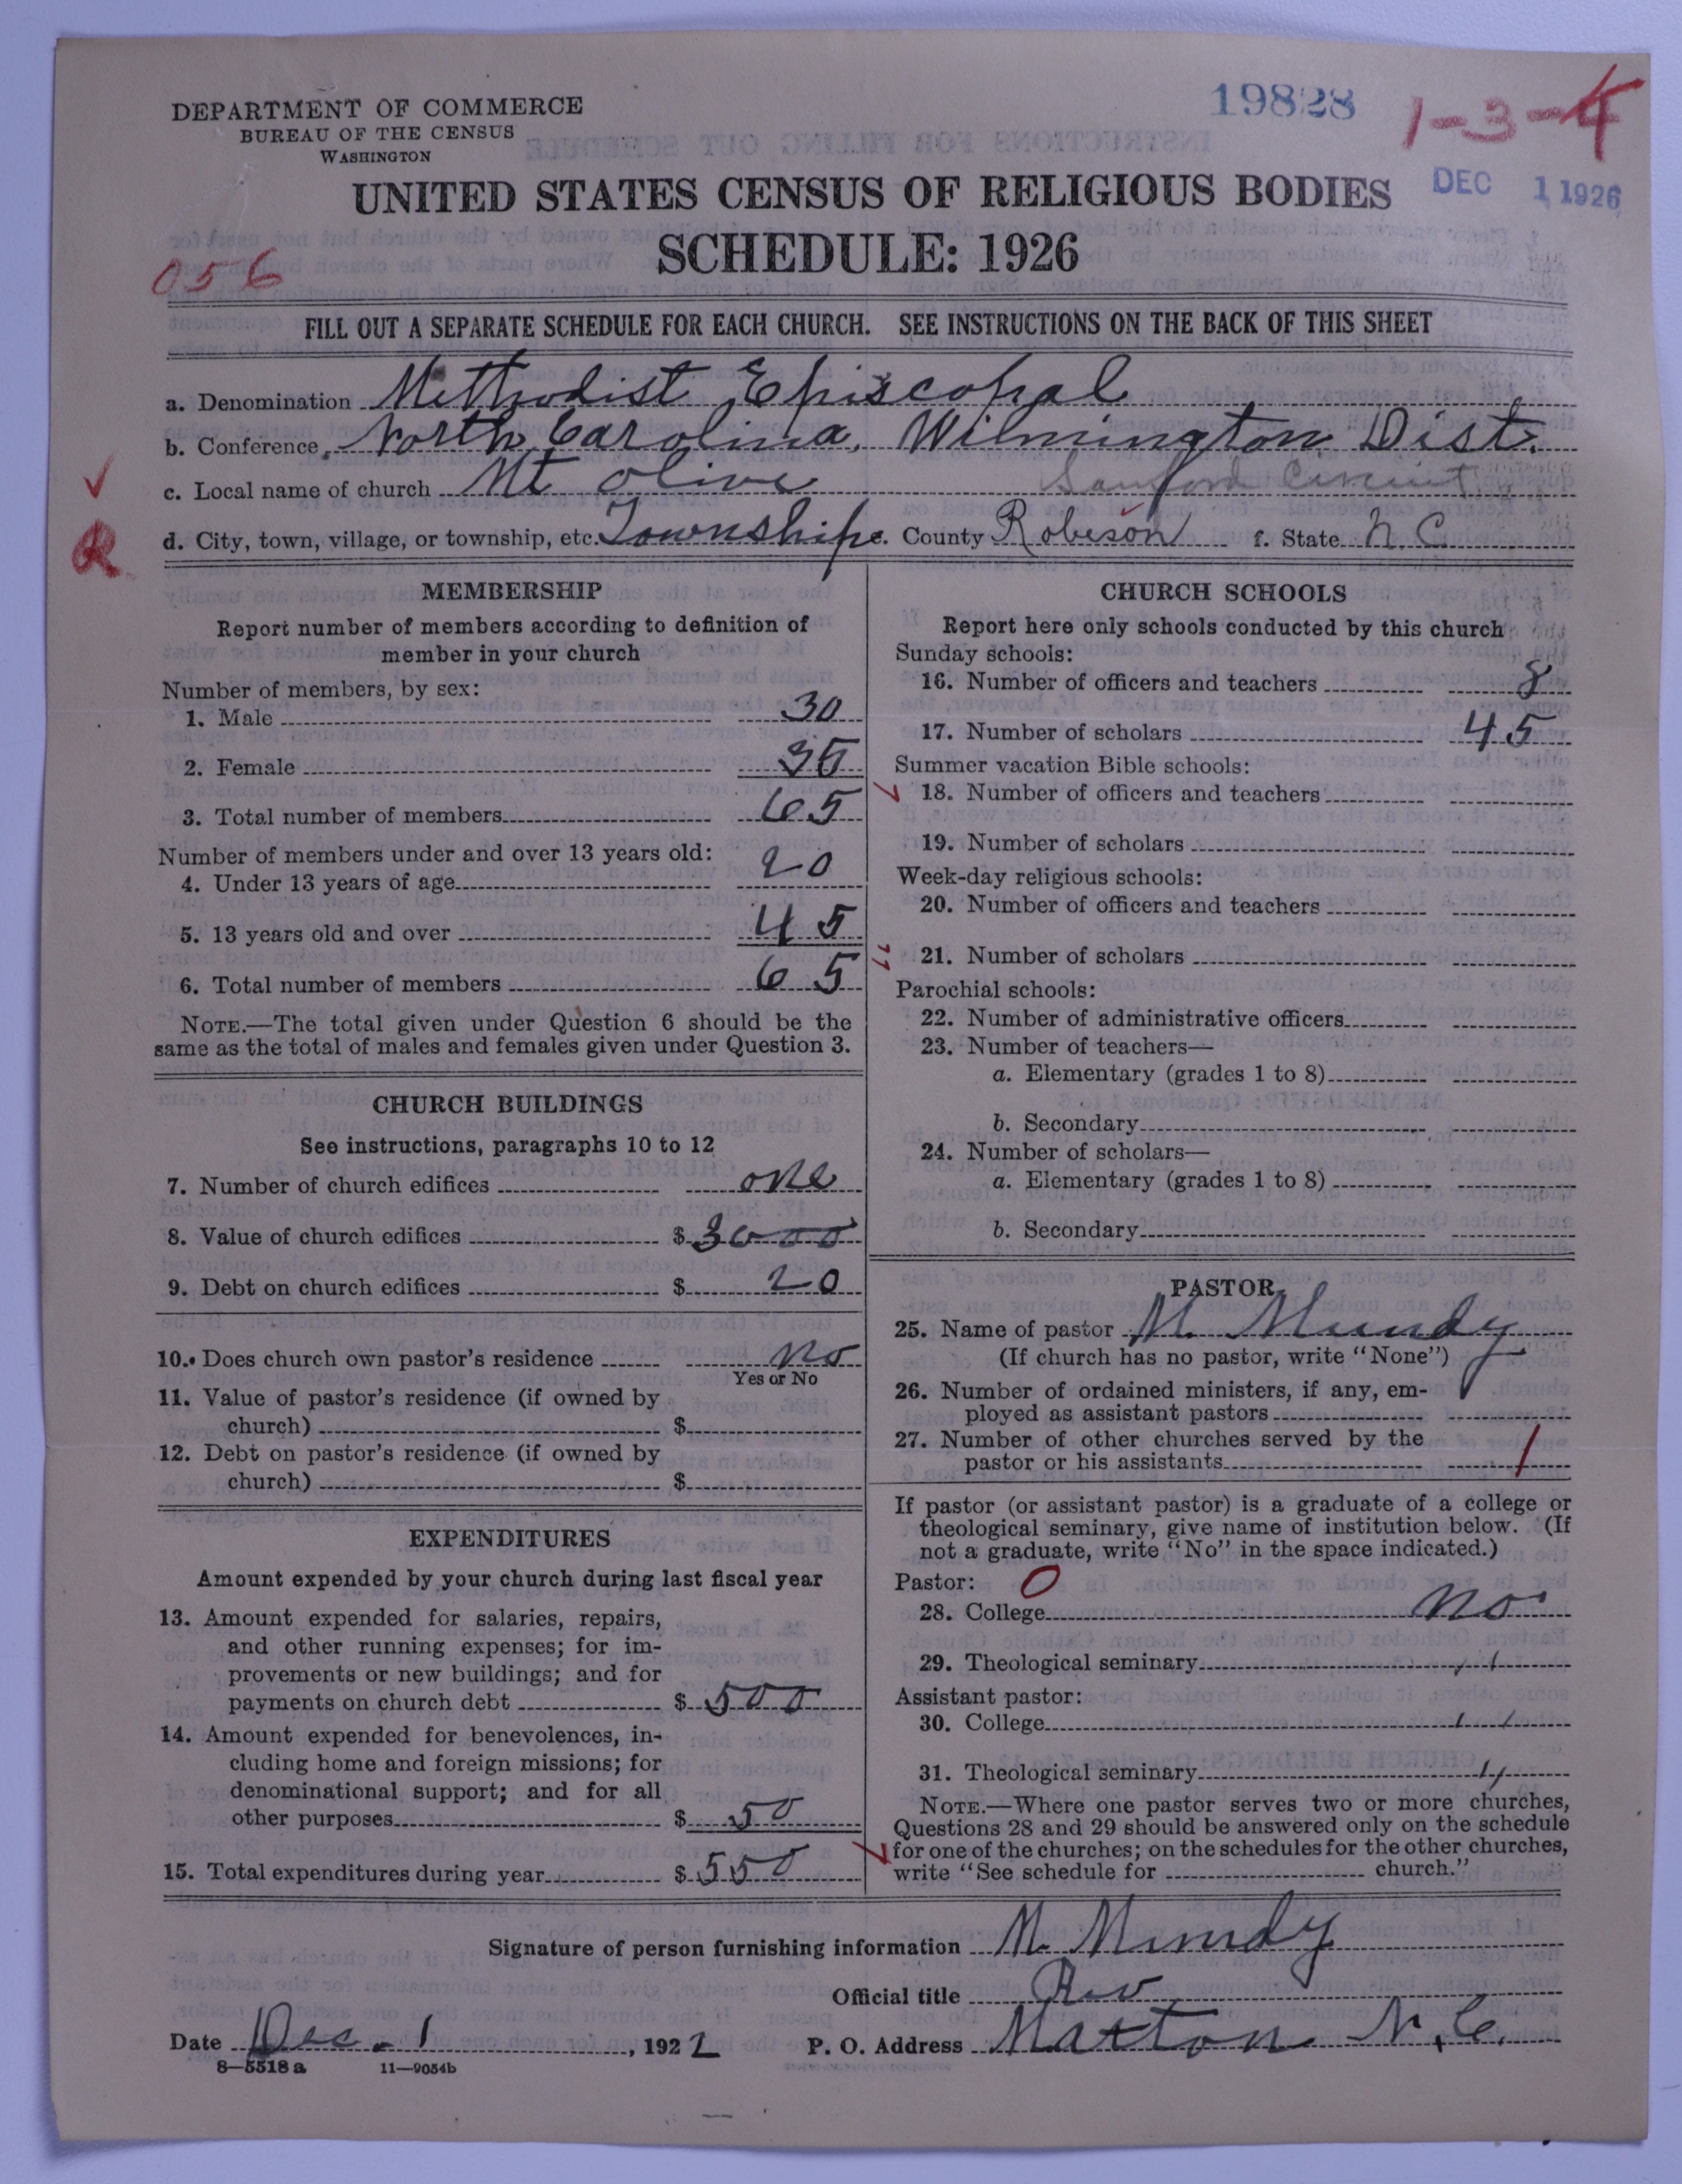 DEPARTMENT OF COMMERCE
BUREAU OF THE CENSUS
WASHINGTON
19828
1-3-4
UNITED STATES CENSUS OF RELIGIOUS BODIES
DEC 1 1926
SCHEDULE: 1926
056
FILL OUT A SEPARATE SCHEDULE FOR EACH CHURCH. SEE INSTRUCTIONS ON THE BACK OF THIS SHEET
a. Denomination Methodist Episcopal
b. Conference North Carolina, Wilmington Dist.
c. Local name of church Mt Olive Sanford Circuit
d. City, town, village, or township, etc. Township e. County Robeson f. State N.C.
R
MEMBERSHIP
Report number of members according to definition of
member in your church
Number of members, by sex:
1. Male 30
2. Female 35
3. Total number of members 65
Number of members under and over 13 years old:
4. Under 13 years of age 20
5. 13 years old and over 45
6. Total number of members 65
NOTE.—The total given under Question 6 should be the
same as the total of males and females given under Question 3.
CHURCH BUILDINGS
See instructions, paragraphs 10 to 12
7. Number of church edifices one
8. Value of church edifices $ 3000
9. Debt on church edifices $ 20
10. Does church own pastor's residence no
Yes or No
11. Value of pastor's residence (if owned by
church) $
12. Debt on pastor's residence (if owned by
church) $
EXPENDITURES
Amount expended by your church during last fiscal year
13. Amount expended for salaries, repairs,
and other running expenses; for im-
provements or new buildings; and for
payments on church debt $ 500
14. Amount expended for benevolences, in-
cluding home and foreign missions; for
denominational support; and for all
other purposes $ 50
15. Total expenditures during year $ 550
CHURCH SCHOOLS
Report here only schools conducted by this church
Sunday schools:
16. Number of officers and teachers 8
17. Number of scholars 45
Summer vacation Bible schools:
18. Number of officers and teachers
19. Number of scholars
Week-day religious schools:
20. Number of officers and teachers
21. Number of scholars
Parochial schools:
22. Number of administrative officers
23. Number of teachers—
a. Elementary (grades 1 to 8)
b. Secondary
24. Number of scholars—
a. Elementary (grades 1 to 8)
b. Secondary
PASTOR
25. Name of pastor M. Mundy
(If church has no pastor, write "None")
26. Number of ordained ministers, if any, em-
ployed as assistant pastors
27. Number of other churches served by the
pastor or his assistants 1
If pastor (or assistant pastor) is a graduate of a college or
theological seminary, give name of institution below. (If
not a graduate, write "No" in the space indicated.)
Pastor: 0
28. College no
29. Theological seminary 〃
Assistant pastor:
30. College 〃
31. Theological seminary 〃
NOTE.—Where one pastor serves two or more churches,
Questions 28 and 29 should be answered only on the schedule
for one of the churches; on the schedules for the other churches,
write "See schedule for church."
Signature of person furnishing information M. Mundy
Official title Rev
Date Dec. 1, 1922 P. O. Address Maxton N.C.
8—5518 a 11—9054b